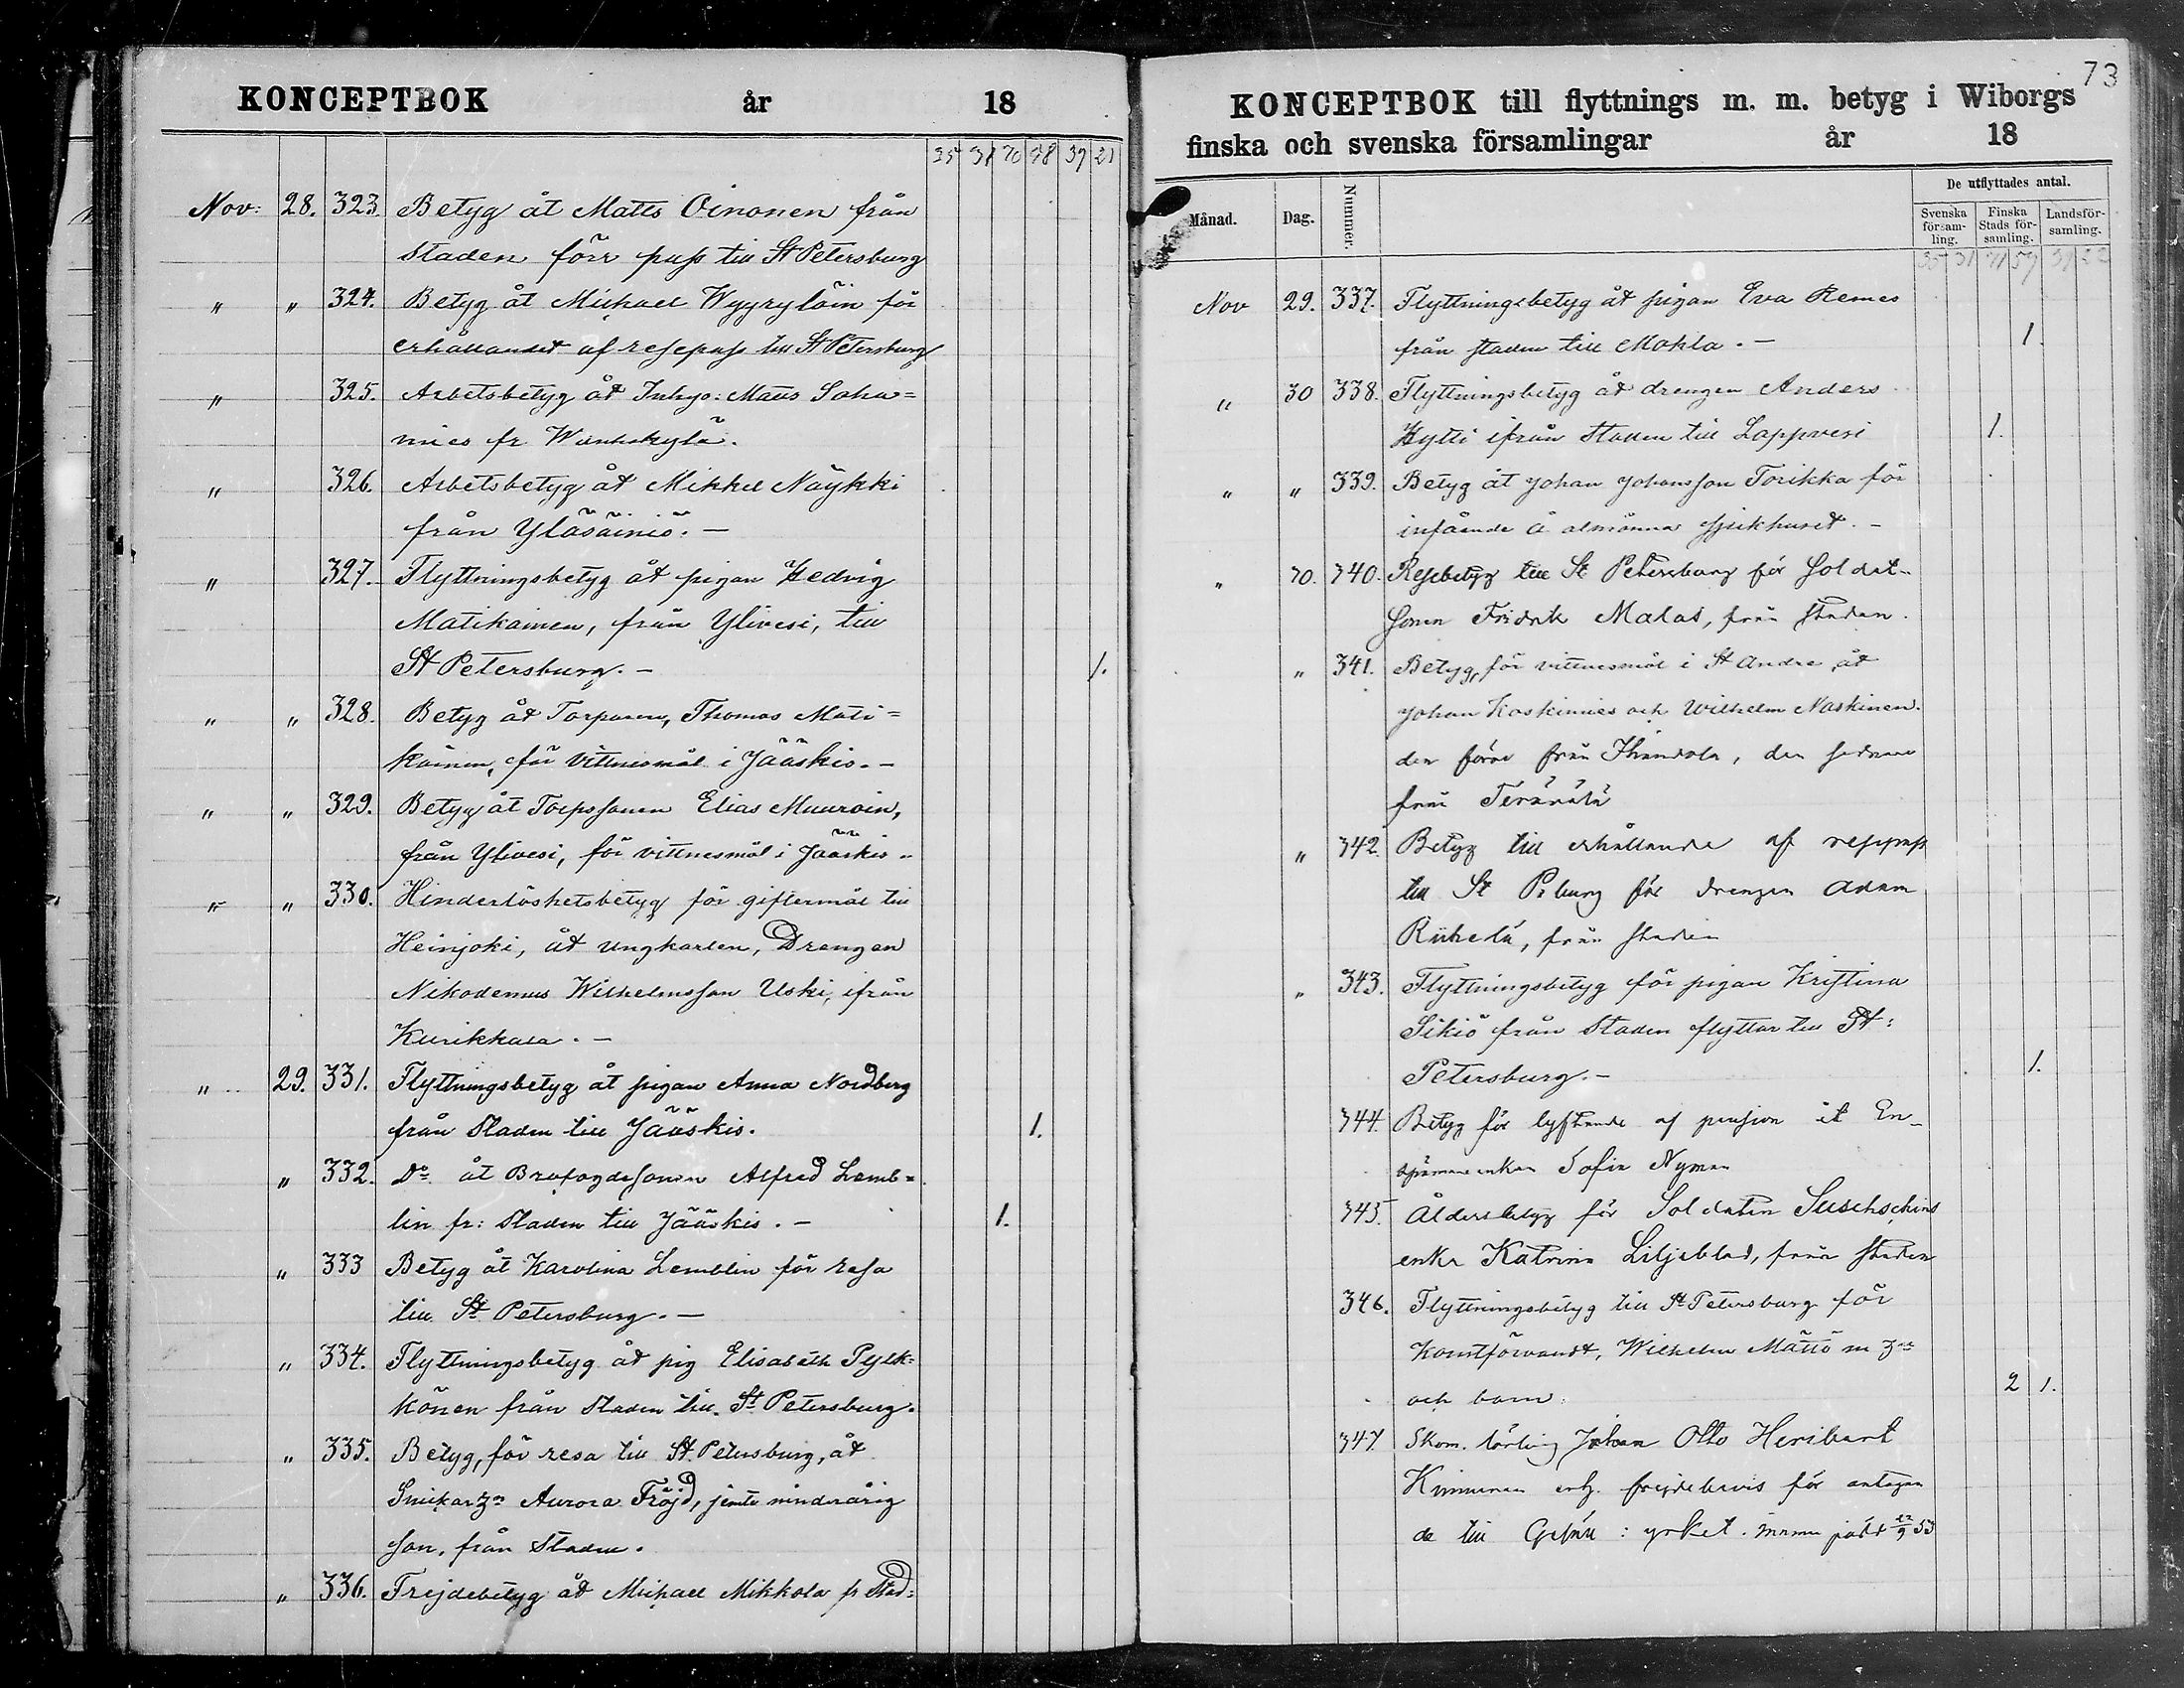 KONCEPTBOK år 18
35 31 70 38 39 21
Nov: 28. 323. Betyg åt Matts Oinonen från
staden förr pass till St Petersburg
" " 324. Betyg åt Michael Wyyryläin för
erhållandet af resepass till St Petersburg
" 325. Arbetsbetyg åt Inhys: Matts Soha=
mies fr
" 326. Arbetsbetyg åt Mikkel Näykki
från Yläsäiniö. —
" 327. Flyttningsbetyg åt pigan Hedvig
Matikainen, från Ylivesi, till
St Petersburg. — 1.
" " 328. Betyg åt Torparen, Thomas Mati=
kainen, för vittnesmål i Jääskis. —
" " 329. Betyg åt Torpssonen Elias Muuroin,
från Ylivesi, för vittnesmål i Jääskis. —
" " 330. Hinderlöshetsbetyg för giftermål till
Heinjoki, åt Ungkarlen, Drengen
Nikodemus Wilhelmsson Uski, ifrån
Kurikkala. —
" 29. 331. Flyttningsbetyg åt pigan Anna Nordberg
från Staden till Jääskis. 1.
" 332. Do åt Brofogdesonen Alfred Lemb=
lin fr: Staden till Jääskis. — 1.
" 333 Betyg åt Karolina Lemblin för resa
till St Petersburg. —
" 334. Flyttningsbetyg åt pig Elisabeth Pylk=
könen från Staden till St Petersburg.
" 335. Betyg, för resa till St. Petersburg, åt
Aurora Fröjd, jemte minderårig
son, från Staden.
" 336. Frejdebetyg åt Michael Mikkola fr Stad=
73
KONCEPTBOK till flyttnings m. m. betyg i Wiborgs
finska och svenska församlingar år 18
Månad. Dag. Nummer. De utflyttades antal.
Svenska församling. Finska Stads församling. Landsförsamling.
35 31 71 59 39 22
Nov 29. 337. Flyttningsbetyg åt pigan Eva Remes
från staden till Mohla. — 1.
" 30 338. Flyttningsbetyg åt drengen Anders
Hytti ifrån Staden till Lappvesi 1.
" " 339. Betyg åt Johan Johansson Torikka för
infående å allmänna sjukhuset. —
" 30. 340. Resebetyg till St Petersburg för Soldat-
sonen Fridrik Malas, från staden.
" 341. Betyg, för vittnesmål i St Andre åt
Johan Koskimies och Wilhelm Naskinen.
den förre från Ihandola, den sednare
från
" 342. Betyg till erhållande af respass
till St Pburg för drengen Adam
Riihelä, från staden
" 343. Flyttningsbetyg för pigan Kristina
Sikiö från Staden flyttar till St:
Petersburg. — 1.
344. Betyg för lyftande af pension åt En-
spännareenkan Sofia Nyman
345. Åldersbetyg för Soldaten Suschschins
enka Katrina Liljeblad, från staden
346. Flyttningsbetyg till St Petersburg för
Konstförvandt, Wilhelm Mättö m
och barn. 2 1.
347. Skom. lärling Johan Otto Heribert
Kimmunen erh. frejdebevis för antagan
de till Gesäll: yrket.